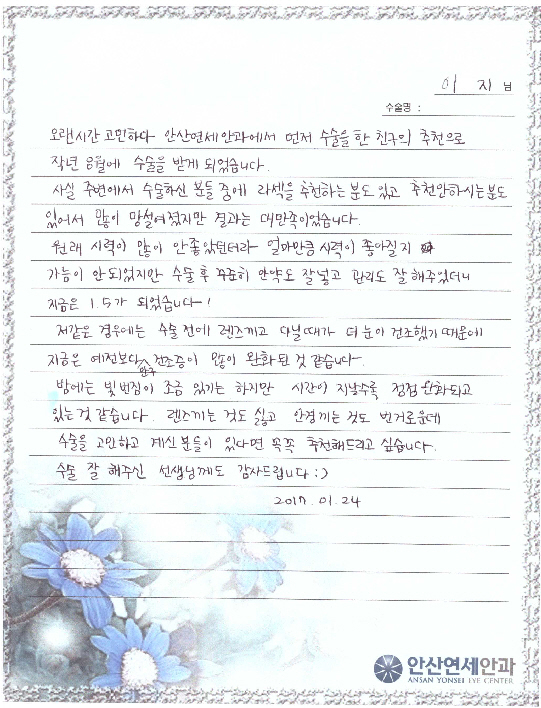 이 지 님
수술명 :
오랜시간 고민하다 안산연세안과에서 먼저 수술을 한 친구의 추천으로
작년 8월에 수술을 받게 되었습니다.
사실 주변에서 수술하신 분들 중에 라섹을 추천하는 분도 있고 추천안하시는분도
있어서 많이 망설여졌지만 결과는 대만족이었습니다.
원래 시력이 많이 안좋았던터라 얼마만큼 시력이 좋아질지
가늠이 안되었지만 수술 후 꾸준히 안약도 잘 넣고 관리도 잘 해주었더니
지금은 1.5가 되었습니다!
저같은 경우에는 수술 전에 렌즈끼고 다닐때가 더 눈이 건조했기 때문에
지금은 예전보다 안구건조증이 많이 완화된 것 같습니다.
밤에는 빛번짐이 조금 있기는 하지만 시간이 지날수록 점점 완화되고
있는 것 같습니다. 렌즈끼는 것도 싫고 안경끼는 것도 번거로운데
수술을 고민하고 계신 분들이 있다면 꼭꼭 추천해드리고 싶습니다.
수술 잘 해주신 선생님께도 감사드립니다 :)
2017. 01. 24
안산연세안과
ANSAN YONSEI EYE CENTER